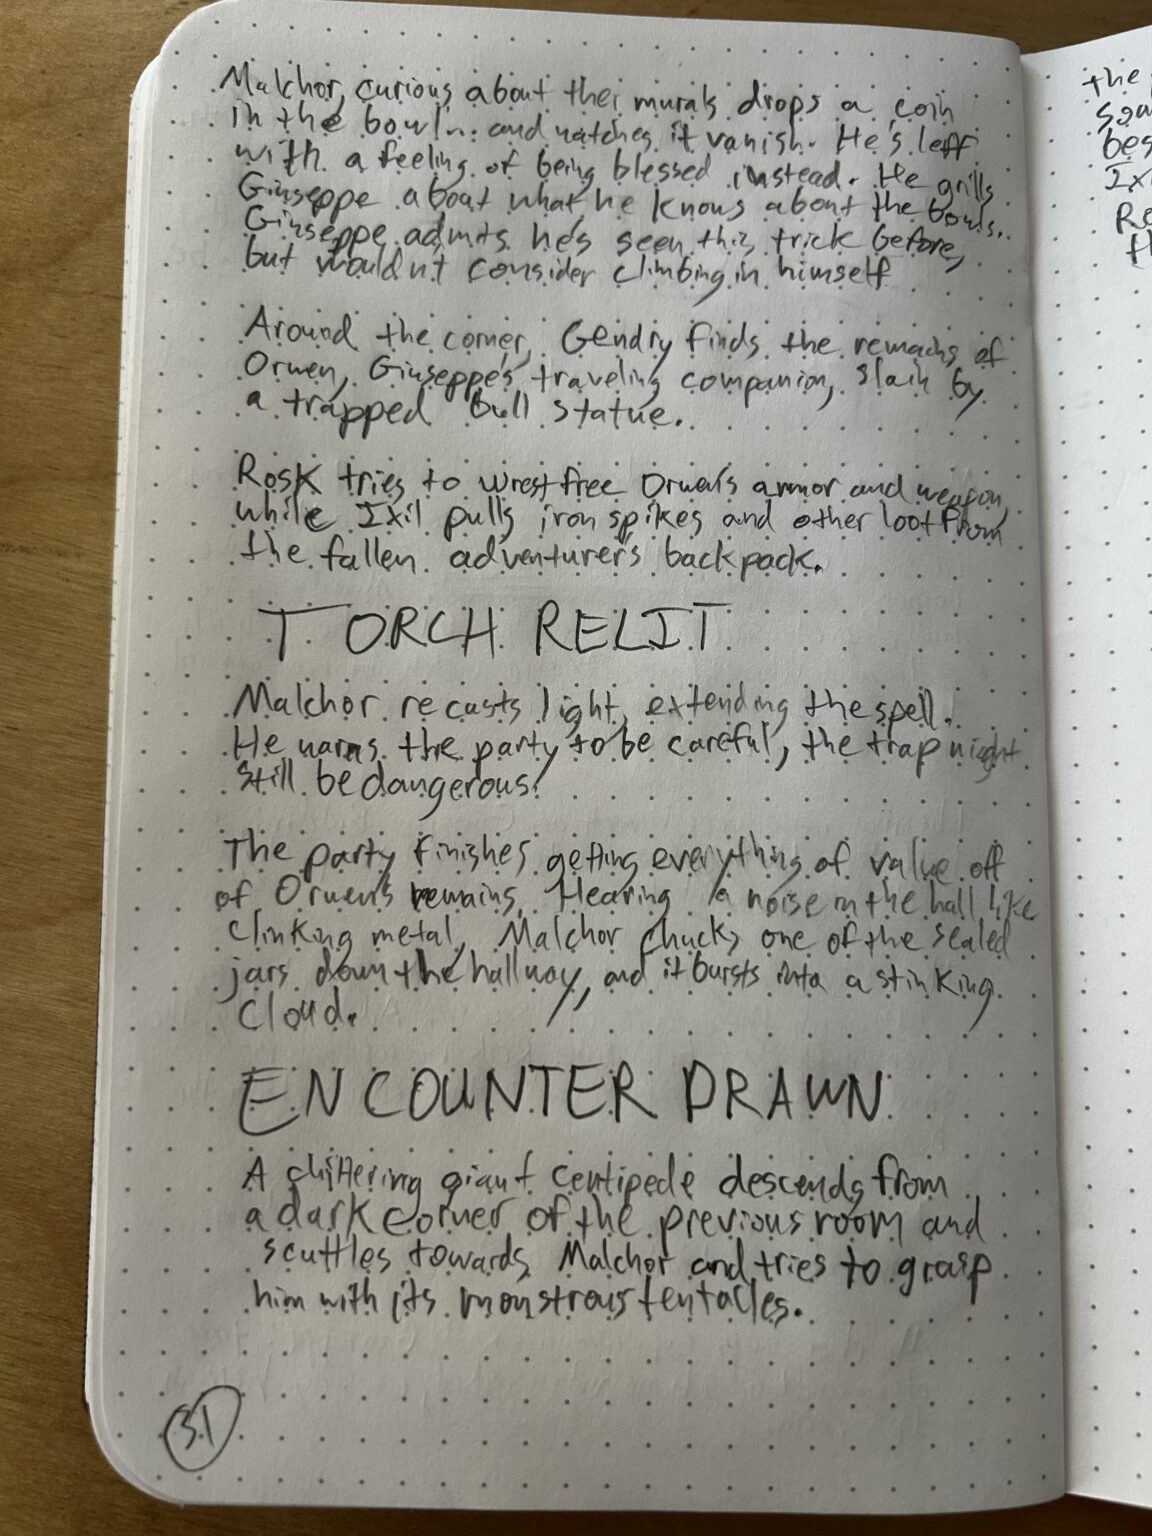 Malchor, curious about their murals drops a coin
in the bowl... and watches it vanish. He's left
with a feeling of being blessed instead. He grills
Giuseppe about what he knows about the bowls.
Giuseppe admits he's seen this trick before,
but wouldn't consider climbing in himself
Around the corner, Gendry finds the remains of
Orwen, Giuseppe's traveling companion, slain by
a trapped bull statue.
Rosk tries to wrest free Orwen's armor and weapon,
while Ixil pulls iron spikes and other loot from
the fallen adventurer's backpack.
TORCH RELIT
Malchor recasts light, extending the spell.
He warns the party to be careful, the trap might
still be dangerous.
The party finishes getting everything of value off
of Orwen's remains. Hearing a noise in the hall like
clinking metal, Malchor chucks one of the sealed
jars down the hallway, and it bursts into a stinking
cloud.
ENCOUNTER DRAWN
A chittering giant centipede descends from
a dark corner of the previous room and
scuttles towards Malchor and tries to grasp
him with its monstrous tentacles.
31
the
Ixi